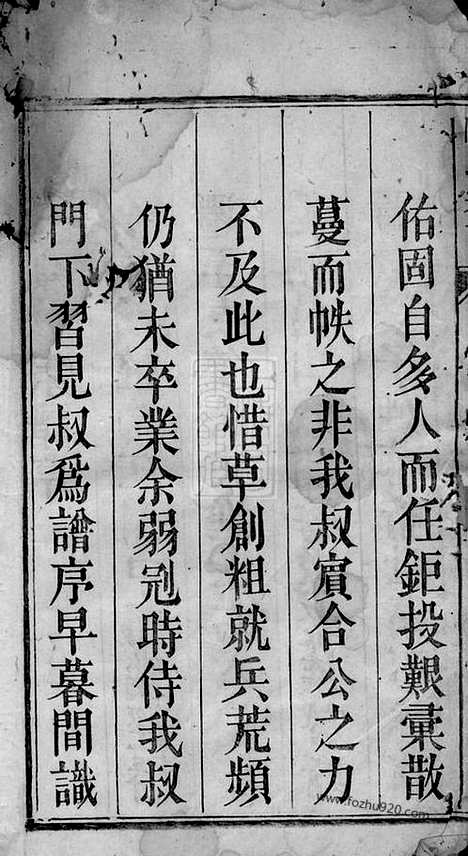 佑固自多人而任鉅投艱彙散
蔓而帙之非我叔賓合公之力
不及此也惜草創粗就兵荒頻
仍猶未卒業余弱冠時侍我叔
門下習見叔為譜序早暮間識
www.fozhu920.com